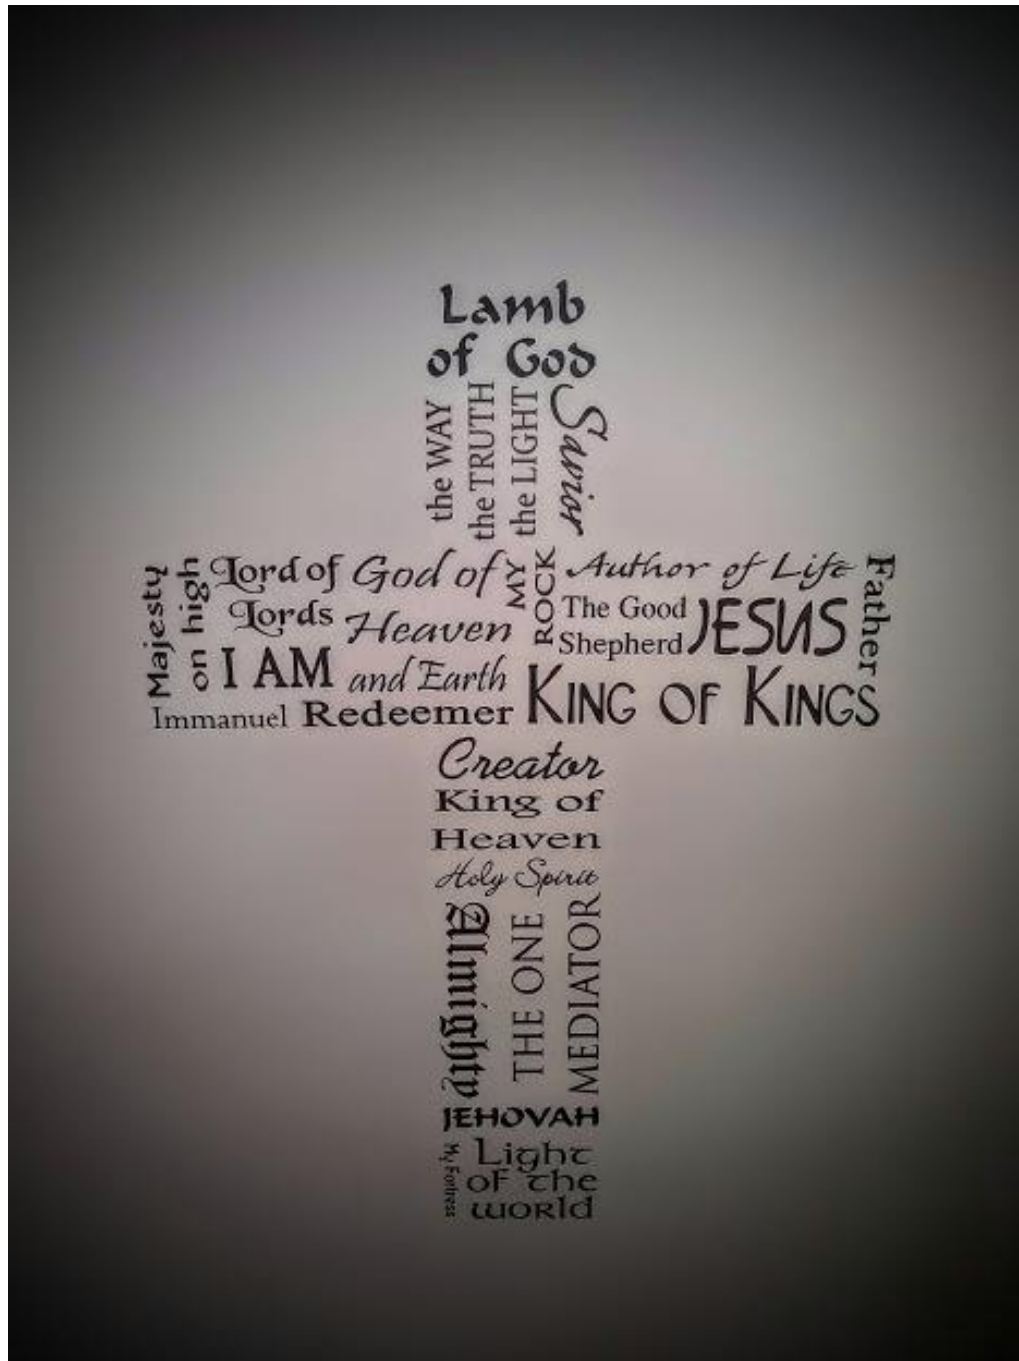 Lamb
of God
the WAY
the TRUTH
the LIGHT
Savior
Majesty
on high
Lord of
Lords
I AM
Immanuel
God of
Heaven
and Earth
Redeemer
MY
ROCK
Author of Life
The Good
Shepherd
JESUS
Father
KING OF KINGS
Creator
King of
Heaven
Holy Spirit
Almighty
THE ONE
MEDIATOR
JEHOVAH
My Fortress
Light
of the
world